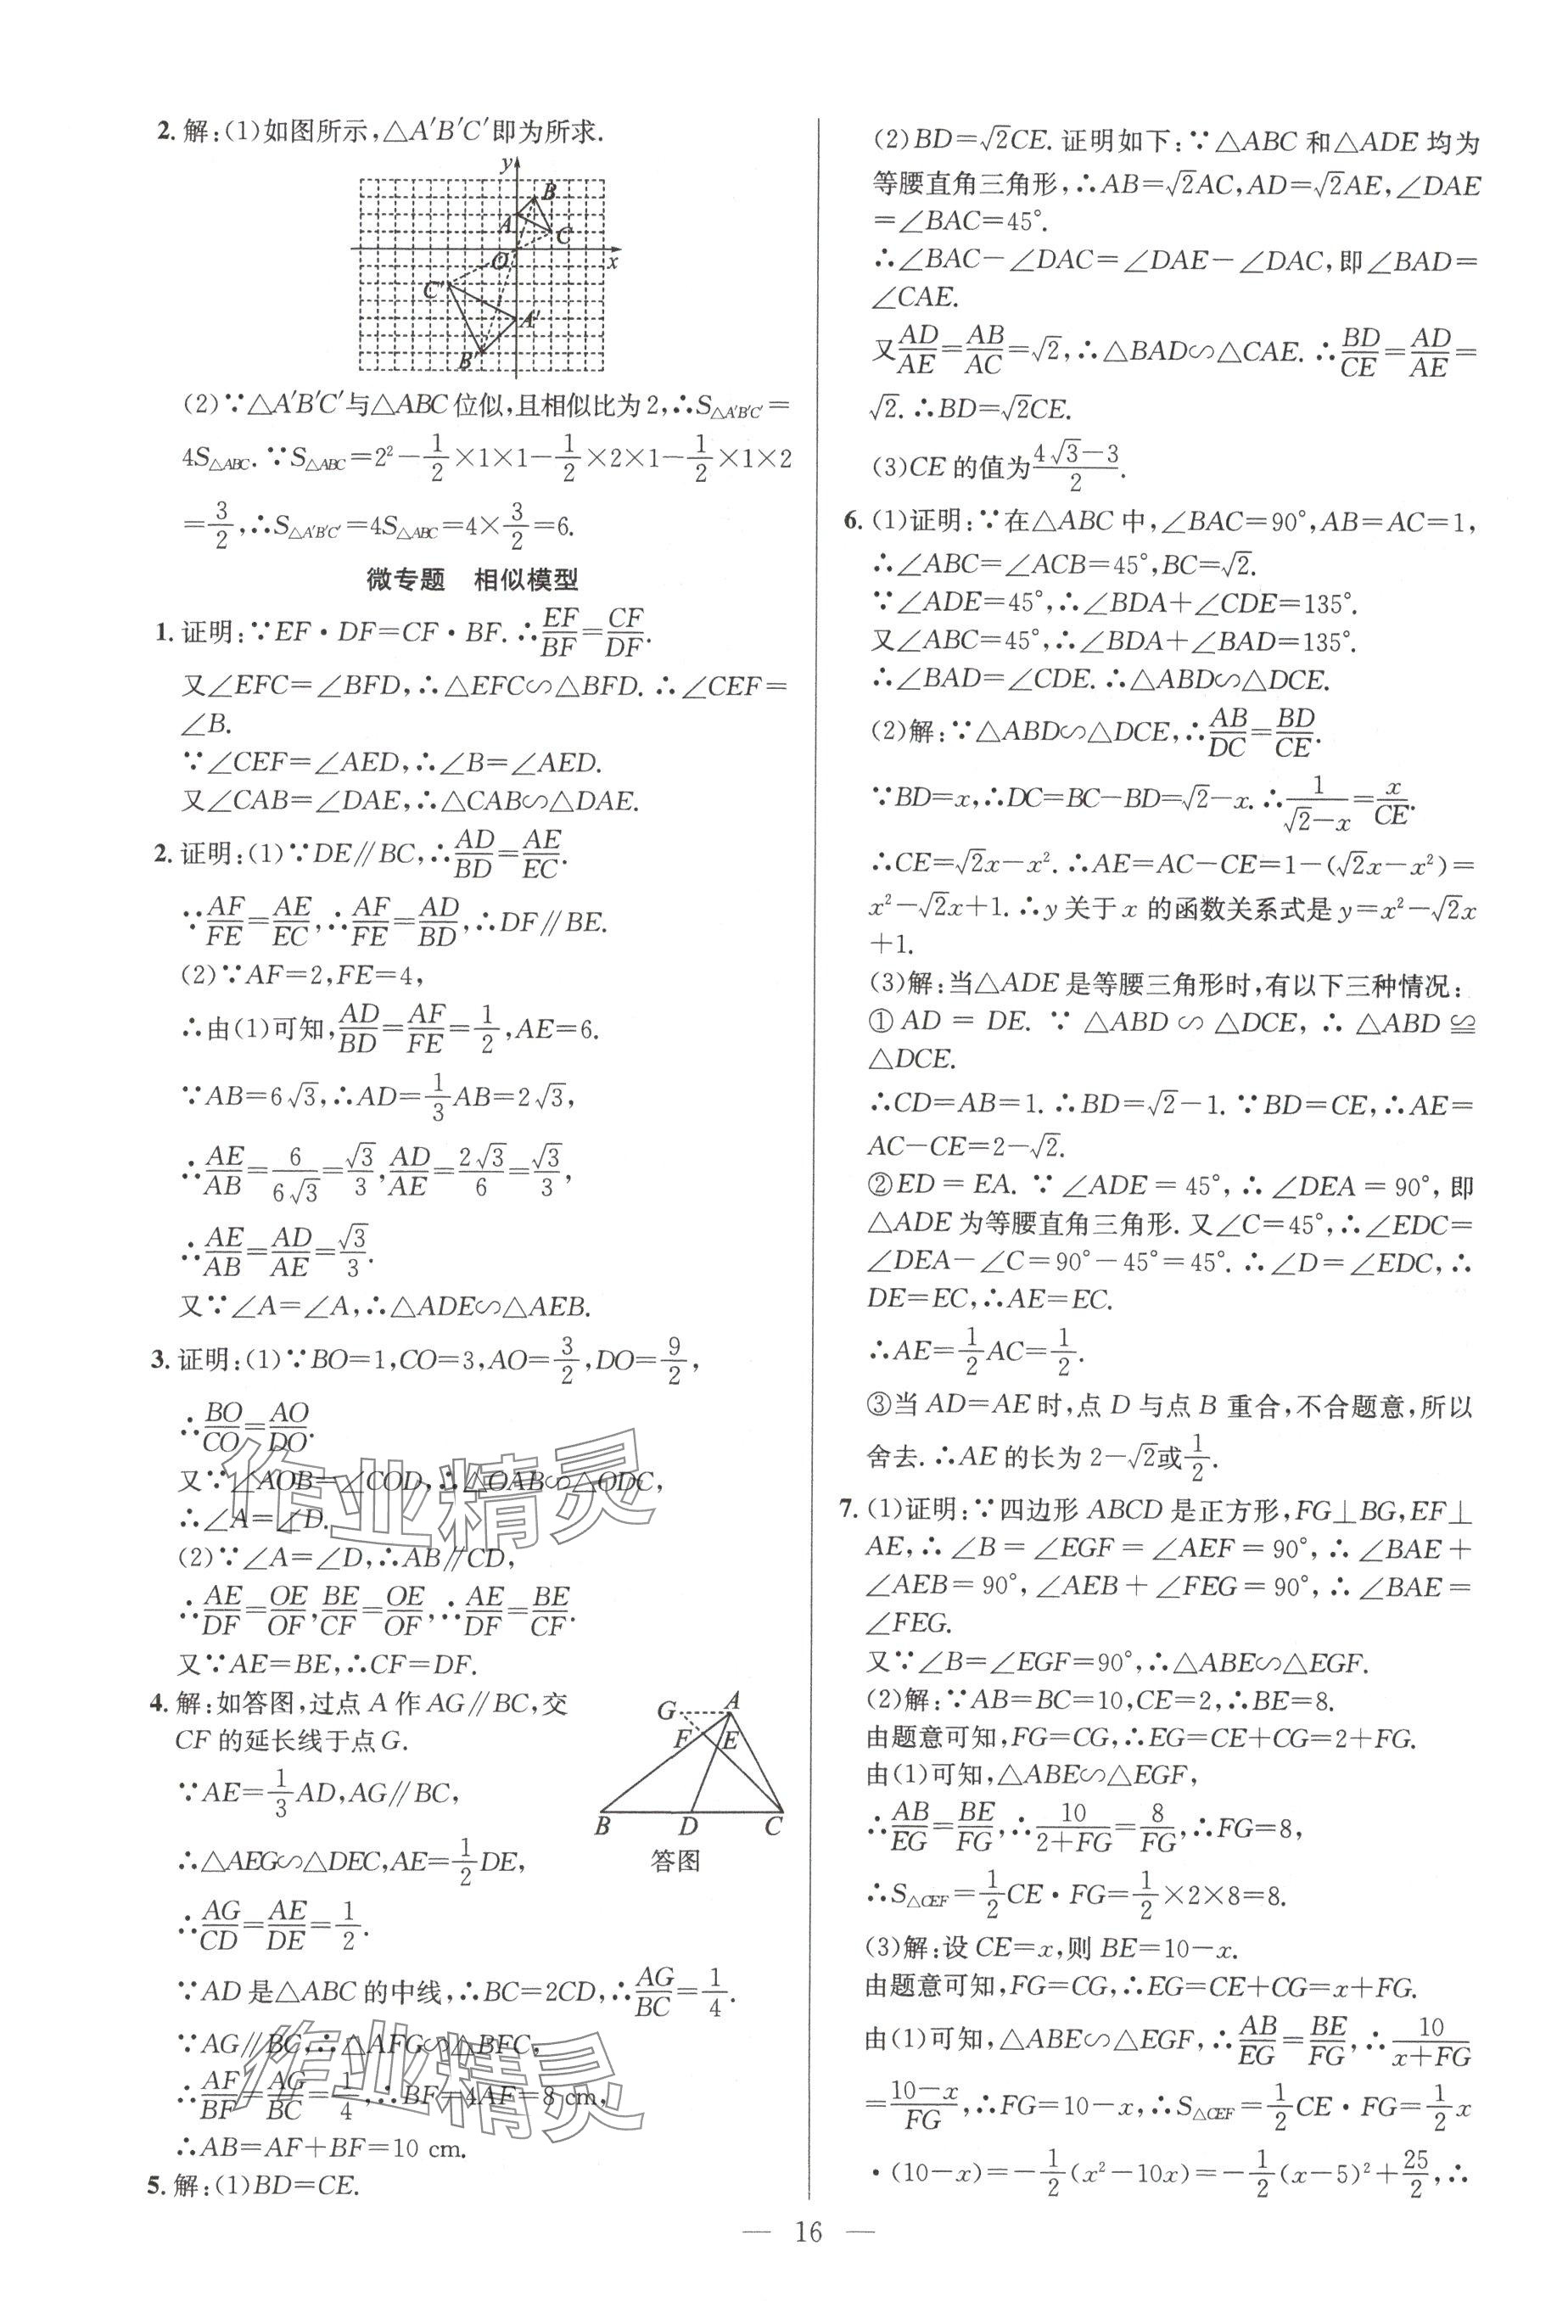 2. 解:(1)如图所示,△A′B′C′即为所求.
y
B
A
C
O
x
C′
A′
B′
(2)∵△A′B′C′与△ABC位似,且相似比为2,∴S△A′B′C′=
4S△ABC. ∵S△ABC=2²-1/2×1×1-1/2×2×1-1/2×1×2
=3/2,∴S△A′B′C′=4S△ABC=4×3/2=6.
微专题 相似模型
1. 证明:∵EF·DF=CF·BF. ∴EF/BF=CF/DF.
又∠EFC=∠BFD,∴△EFC∽△BFD. ∴∠CEF=
∠B.
∵∠CEF=∠AED,∴∠B=∠AED.
又∠CAB=∠DAE,∴△CAB∽△DAE.
2. 证明:(1)∵DE∥BC,∴AD/BD=AE/EC.
∵AF/FE=AE/EC,∴AF/FE=AD/BD,∴DF∥BE.
(2)∵AF=2,FE=4,
∴由(1)可知,AD/BD=AF/FE=1/2,AE=6.
∵AB=6√3,∴AD=1/3AB=2√3,
∴AE/AB=6/6√3=√3/3,AD/AE=2√3/6=√3/3,
∴AE/AB=AD/AE=√3/3.
又∵∠A=∠A,∴△ADE∽△AEB.
3. 证明:(1)∵BO=1,CO=3,AO=3/2,DO=9/2,
∴BO/CO=AO/DO.
又∵∠AOB=∠COD,∴△OAB∽△ODC,
∴∠A=∠D.
(2)∵∠A=∠D,∴AB∥CD,
∴AE/DF=OE/OF,BE/CF=OE/OF,∴AE/DF=BE/CF.
又∵AE=BE,∴CF=DF.
4. 解:如答图,过点A作AG∥BC,交
CF的延长线于点G.
∵AE=1/3AD,AG∥BC,
∴△AEG∽△DEC,AE=1/2DE,
∴AG/CD=AE/DE=1/2.
G
A
F
E
B
D
C
答图
∵AD是△ABC的中线,∴BC=2CD,∴AG/BC=1/4.
∵AG∥BC,∴△AFG∽△BFC,
∴AF/BF=AG/BC=1/4,∴BF=4AF=8 cm,
∴AB=AF+BF=10 cm.
5. 解:(1)BD=CE.
(2)BD=√2CE. 证明如下:∵△ABC和△ADE均为
等腰直角三角形,∴AB=√2AC,AD=√2AE,∠DAE
=∠BAC=45°.
∴∠BAC-∠DAC=∠DAE-∠DAC,即∠BAD=
∠CAE.
又AD/AE=AB/AC=√2,∴△BAD∽△CAE. ∴BD/CE=AD/AE=
√2. ∴BD=√2CE.
(3)CE的值为(4√3-3)/2.
6. (1)证明:∵在△ABC中,∠BAC=90°,AB=AC=1,
∴∠ABC=∠ACB=45°,BC=√2.
∵∠ADE=45°,∴∠BDA+∠CDE=135°.
又∠ABC=45°,∴∠BDA+∠BAD=135°.
∴∠BAD=∠CDE. ∴△ABD∽△DCE.
(2)解:∵△ABD∽△DCE,∴AB/DC=BD/CE.
∵BD=x,∴DC=BC-BD=√2-x. ∴1/(√2-x)=x/CE.
∴CE=√2x-x². ∴AE=AC-CE=1-(√2x-x²)=
x²-√2x+1. ∴y关于x的函数关系式是y=x²-√2x
+1.
(3)解:当△ADE是等腰三角形时,有以下三种情况:
①AD=DE. ∵△ABD∽△DCE,∴△ABD≌
△DCE.
∴CD=AB=1. ∴BD=√2-1. ∵BD=CE,∴AE=
AC-CE=2-√2.
②ED=EA. ∵∠ADE=45°,∴∠DEA=90°,即
△ADE为等腰直角三角形. 又∠C=45°,∴∠EDC=
∠DEA-∠C=90°-45°=45°. ∴∠D=∠EDC,∴
DE=EC,∴AE=EC.
∴AE=1/2AC=1/2.
③当AD=AE时,点D与点B重合,不合题意,所以
舍去. ∴AE的长为2-√2或1/2.
7. (1)证明:∵四边形ABCD是正方形,FG⊥BG,EF⊥
AE,∴∠B=∠EGF=∠AEF=90°,∴∠BAE+
∠AEB=90°,∠AEB+∠FEG=90°,∴∠BAE=
∠FEG.
又∵∠B=∠EGF=90°,∴△ABE∽△EGF.
(2)解:∵AB=BC=10,CE=2,∴BE=8.
由题意可知,FG=CG,∴EG=CE+CG=2+FG.
由(1)可知,△ABE∽△EGF,
∴AB/EG=BE/FG,∴10/(2+FG)=8/FG,∴FG=8,
∴S△CEF=1/2CE·FG=1/2×2×8=8.
(3)解:设CE=x,则BE=10-x.
由题意可知,FG=CG,∴EG=CE+CG=x+FG.
由(1)可知,△ABE∽△EGF,∴AB/EG=BE/FG,∴10/(x+FG)
=(10-x)/FG,∴FG=10-x,∴S△CEF=1/2CE·FG=1/2x
·(10-x)=-1/2(x²-10x)=-1/2(x-5)²+25/2,∴
— 16 —
作业精灵
作业精灵